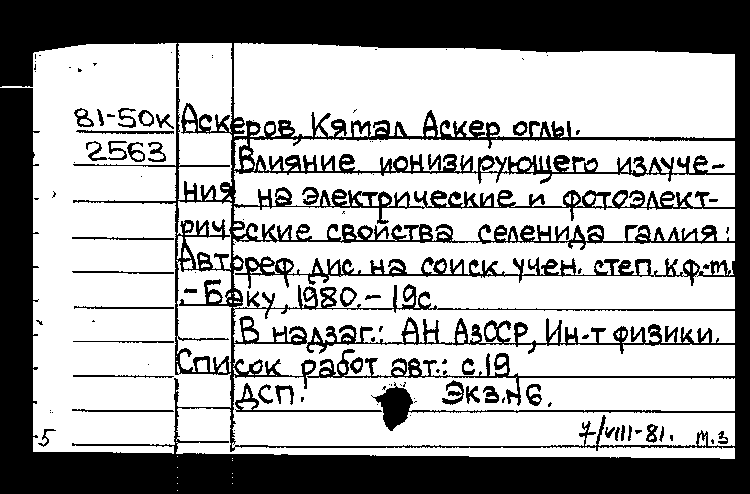 81-50к Аскеров, Кямал Аскер оглы.
2563 Влияние ионизирующего излуче-
ния на электрические и фотоэлект-
рические свойства селенида галлия:
Автореф. дис. на соиск. учен. степ. к.ф.-м.
.-Баку, 1980.-19с.
В надзаг.: АН АзССР, Ин-т физики.
Список работ авт.: с.19.
ДСП. Экз.№6.
7/VIII-81. м.з
5